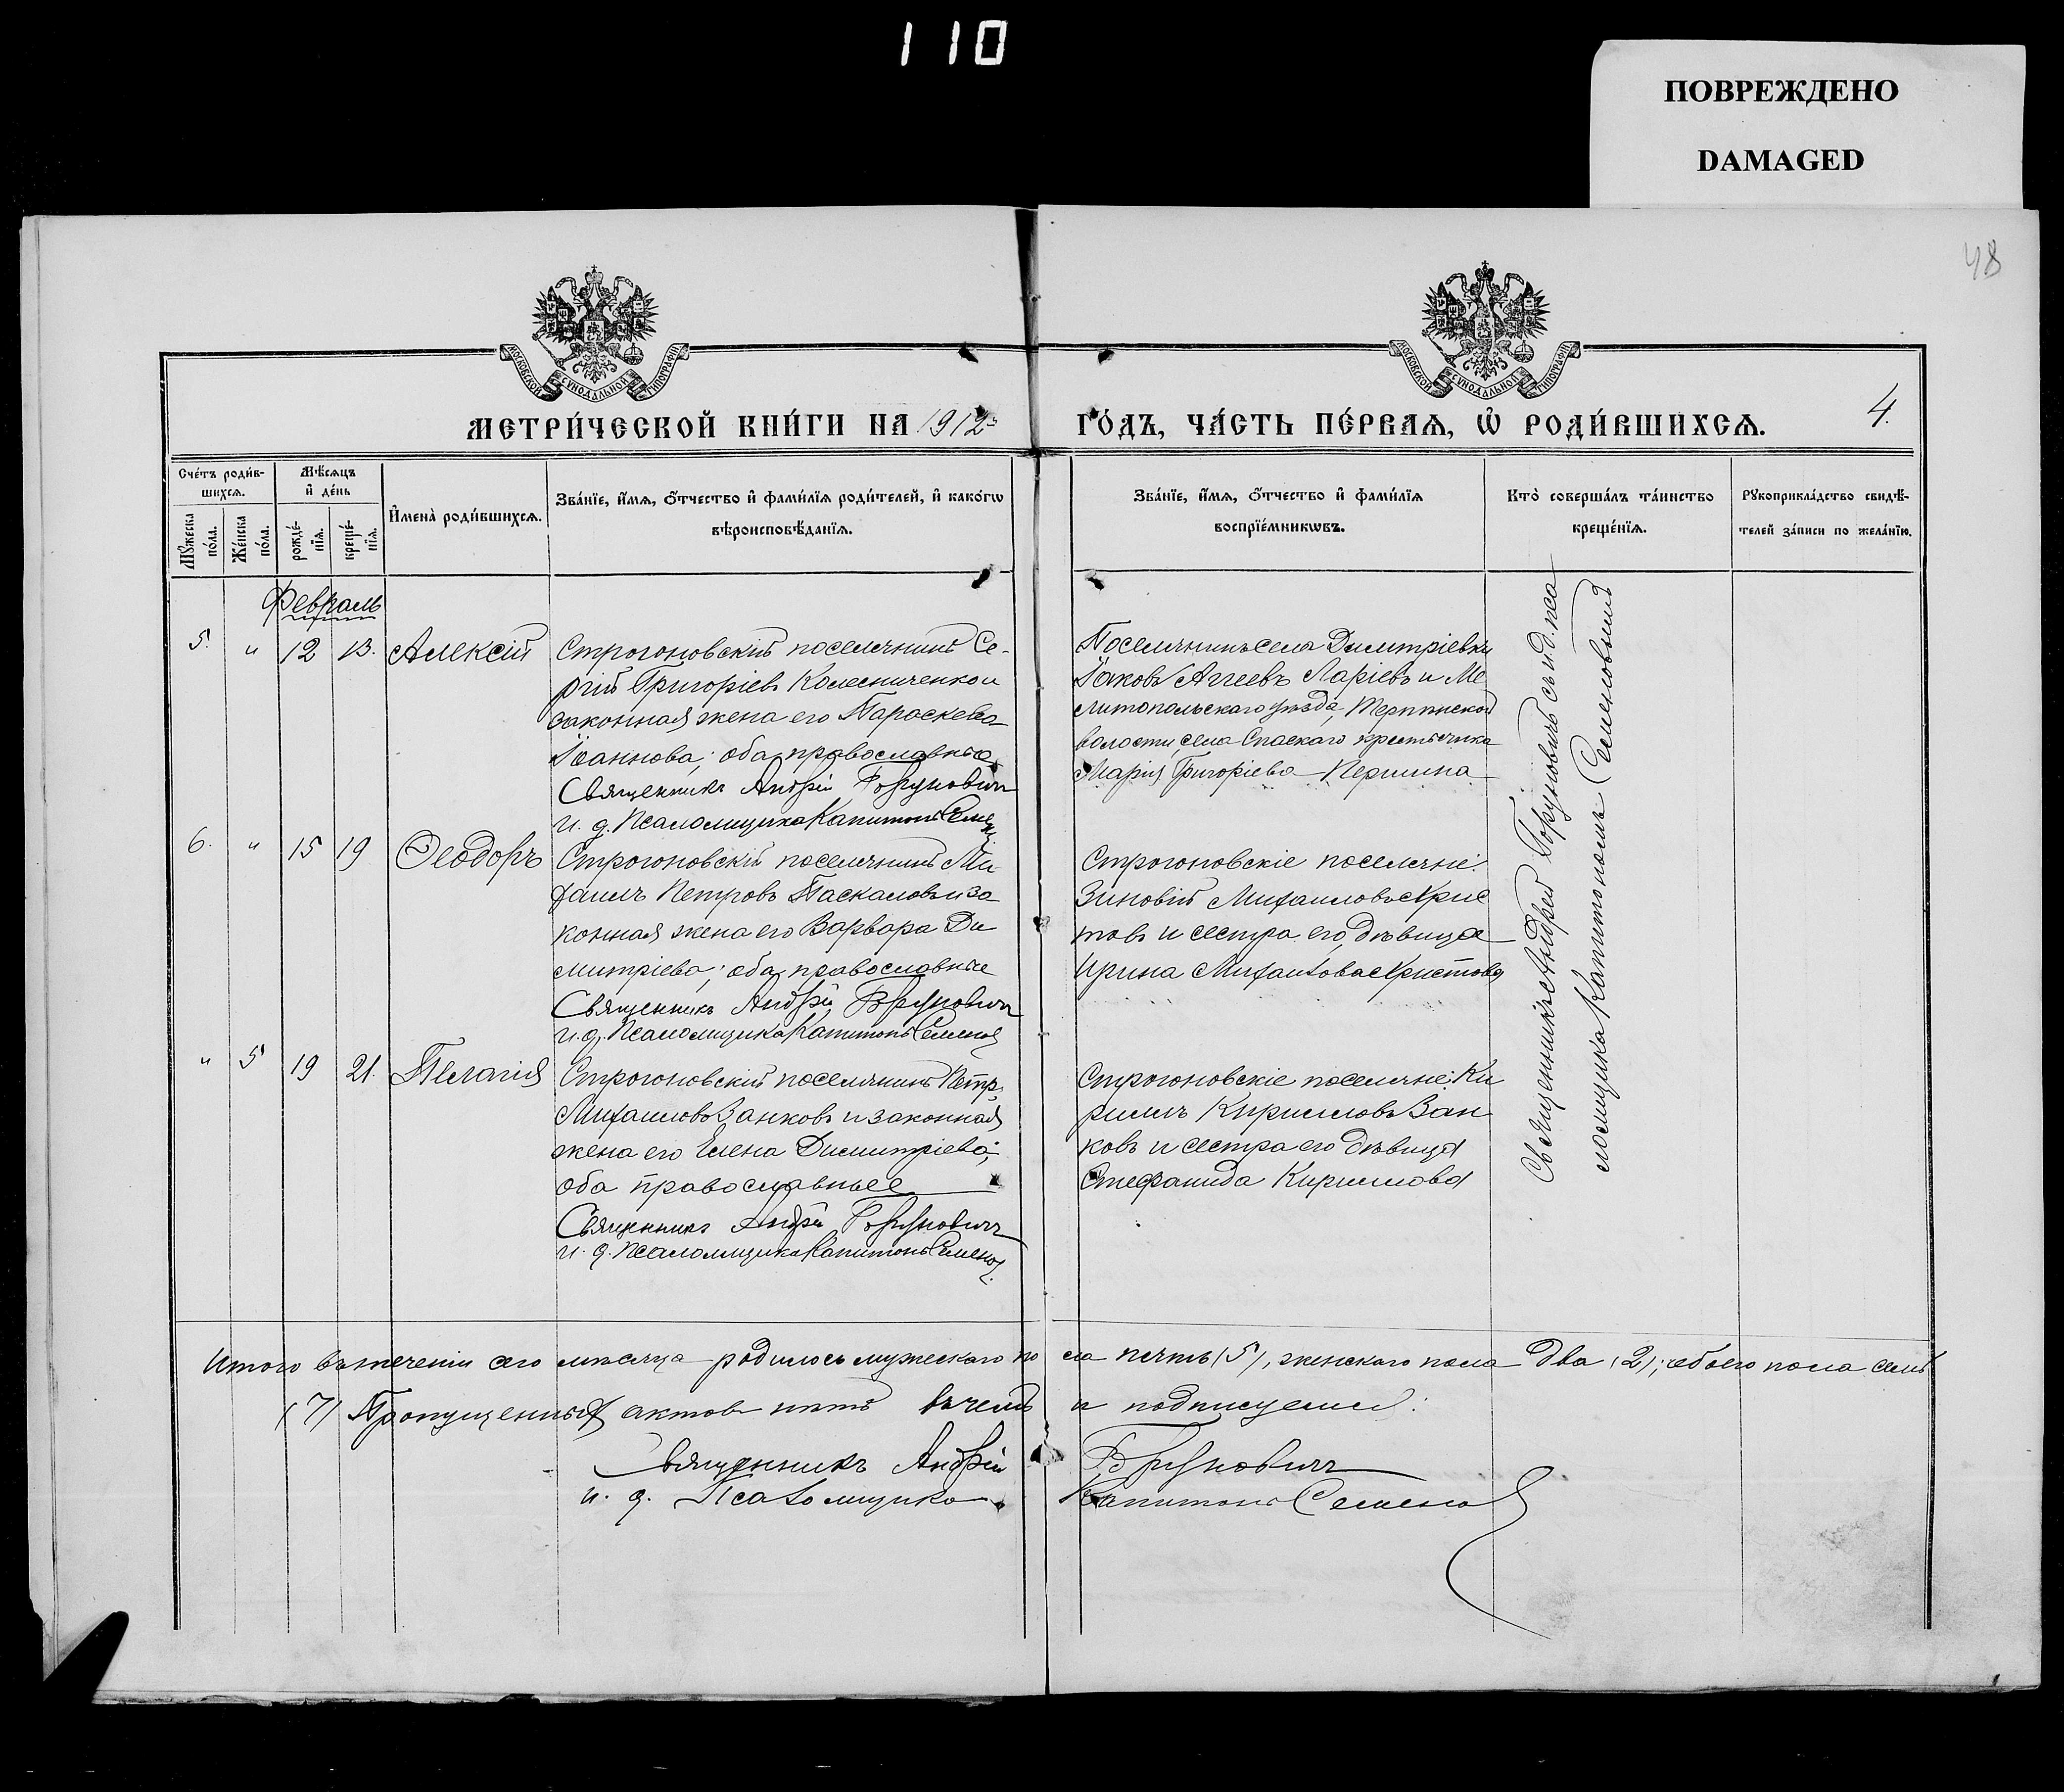 110
ПОВРЕЖДЕНО
DAMAGED
48
МОСКОВСКОЙ СѴНОДАЛЬНОЙ ТИПОГРАФІИ
МОСКОВСКОЙ СѴНОДАЛЬНОЙ ТИПОГРАФІИ
МЕТРИ́ЧЕСКОЙ КНИ́ГИ НА 1912
ГО́ДЪ, ЧА́СТЬ ПЕ́РВАѦ, Ѡ҆ РОДИ́ВШИХСѦ.
4.
Сче́тъ роди́в-
шихсѧ.
Мѣ́сѧцъ
и҆ де́нь
Мꙋ́жеска
по́ла.
Же́нска
по́ла.
рожде́-
нїѧ.
креще́-
нїѧ.
И҆мена̀ роди́вшихсѧ.
Зва́нїе, и҆́мѧ, ѻ҆́тчество и҆ фами́лїѧ роди́телей, и҆ како́гѡ
вѣроисповѣ́данїѧ.
Зва́нїе, и҆́мѧ, ѻ҆́тчество и҆ фами́лїѧ
воспрїе́мникѡвъ.
Кто̀ соверша́лъ та́инство
креще́нїѧ.
Рꙋкоприкла́дство свидѣ́-
телей за́писи по жела́нїю.
Февраль
5. " 12 13. Алексій
Строгоновскій поселянинъ Се-
ргій Григоріевъ Колесниченко и
законная жена его Параскева
Іоаннова; оба православные
Священникъ Андрій Горуновичъ
И. д. Псаломщика Капитонъ Семенов
Поселянинъ села Димитріевки
Іаковъ Аггеевъ Ларіевъ и Ме
литопольскаго уѣзда, Терпинской
волости, села Спасскаго крестьянка
Марія Григоріева Першина
6. " 15 19 Ѳеодоръ
Строгоновскій поселянинъ Ми
хаилъ Петровъ Паскаловъ и за
конная жена его Варвара Ди
митріева; оба православные
Священникъ Андрій Горуновичъ
и. д. Псаломщика Капитонъ Семенов
Строгоновскіе поселяне:
Зиновій Михаиловъ Хрис
товъ и сестра его, дѣвица
Ирина Михаилова Христова
" 5 19 21. Пелагія
Строгоновскій поселянинъ Петръ
Михаиловъ Занковъ и законная
жена его Елена Димитріева;
оба православные
Священникъ Андрій Горуновичъ
и. д. Псаломщика Капитонъ Семенов
Строгоновскіе поселяне: Ки
риллъ Кирилловъ Зан
ковъ и сестра его дѣвица
Стефанида Кириллова
Священникъ Андрей Горуновичъ съ и. д. пса
ломщика Капитономъ Семеновымъ
Итого въ теченіи сего мѣсяца родилось мужескаго по ла пять (5), женскаго пола два (2), обоего пола семь
(7) Пропущенныхъ актовъ нѣтъ въ чемъ и подписуемся:
Священникъ Андрій Горуновичъ
и. д. Псаломщика Капитонъ Семенов